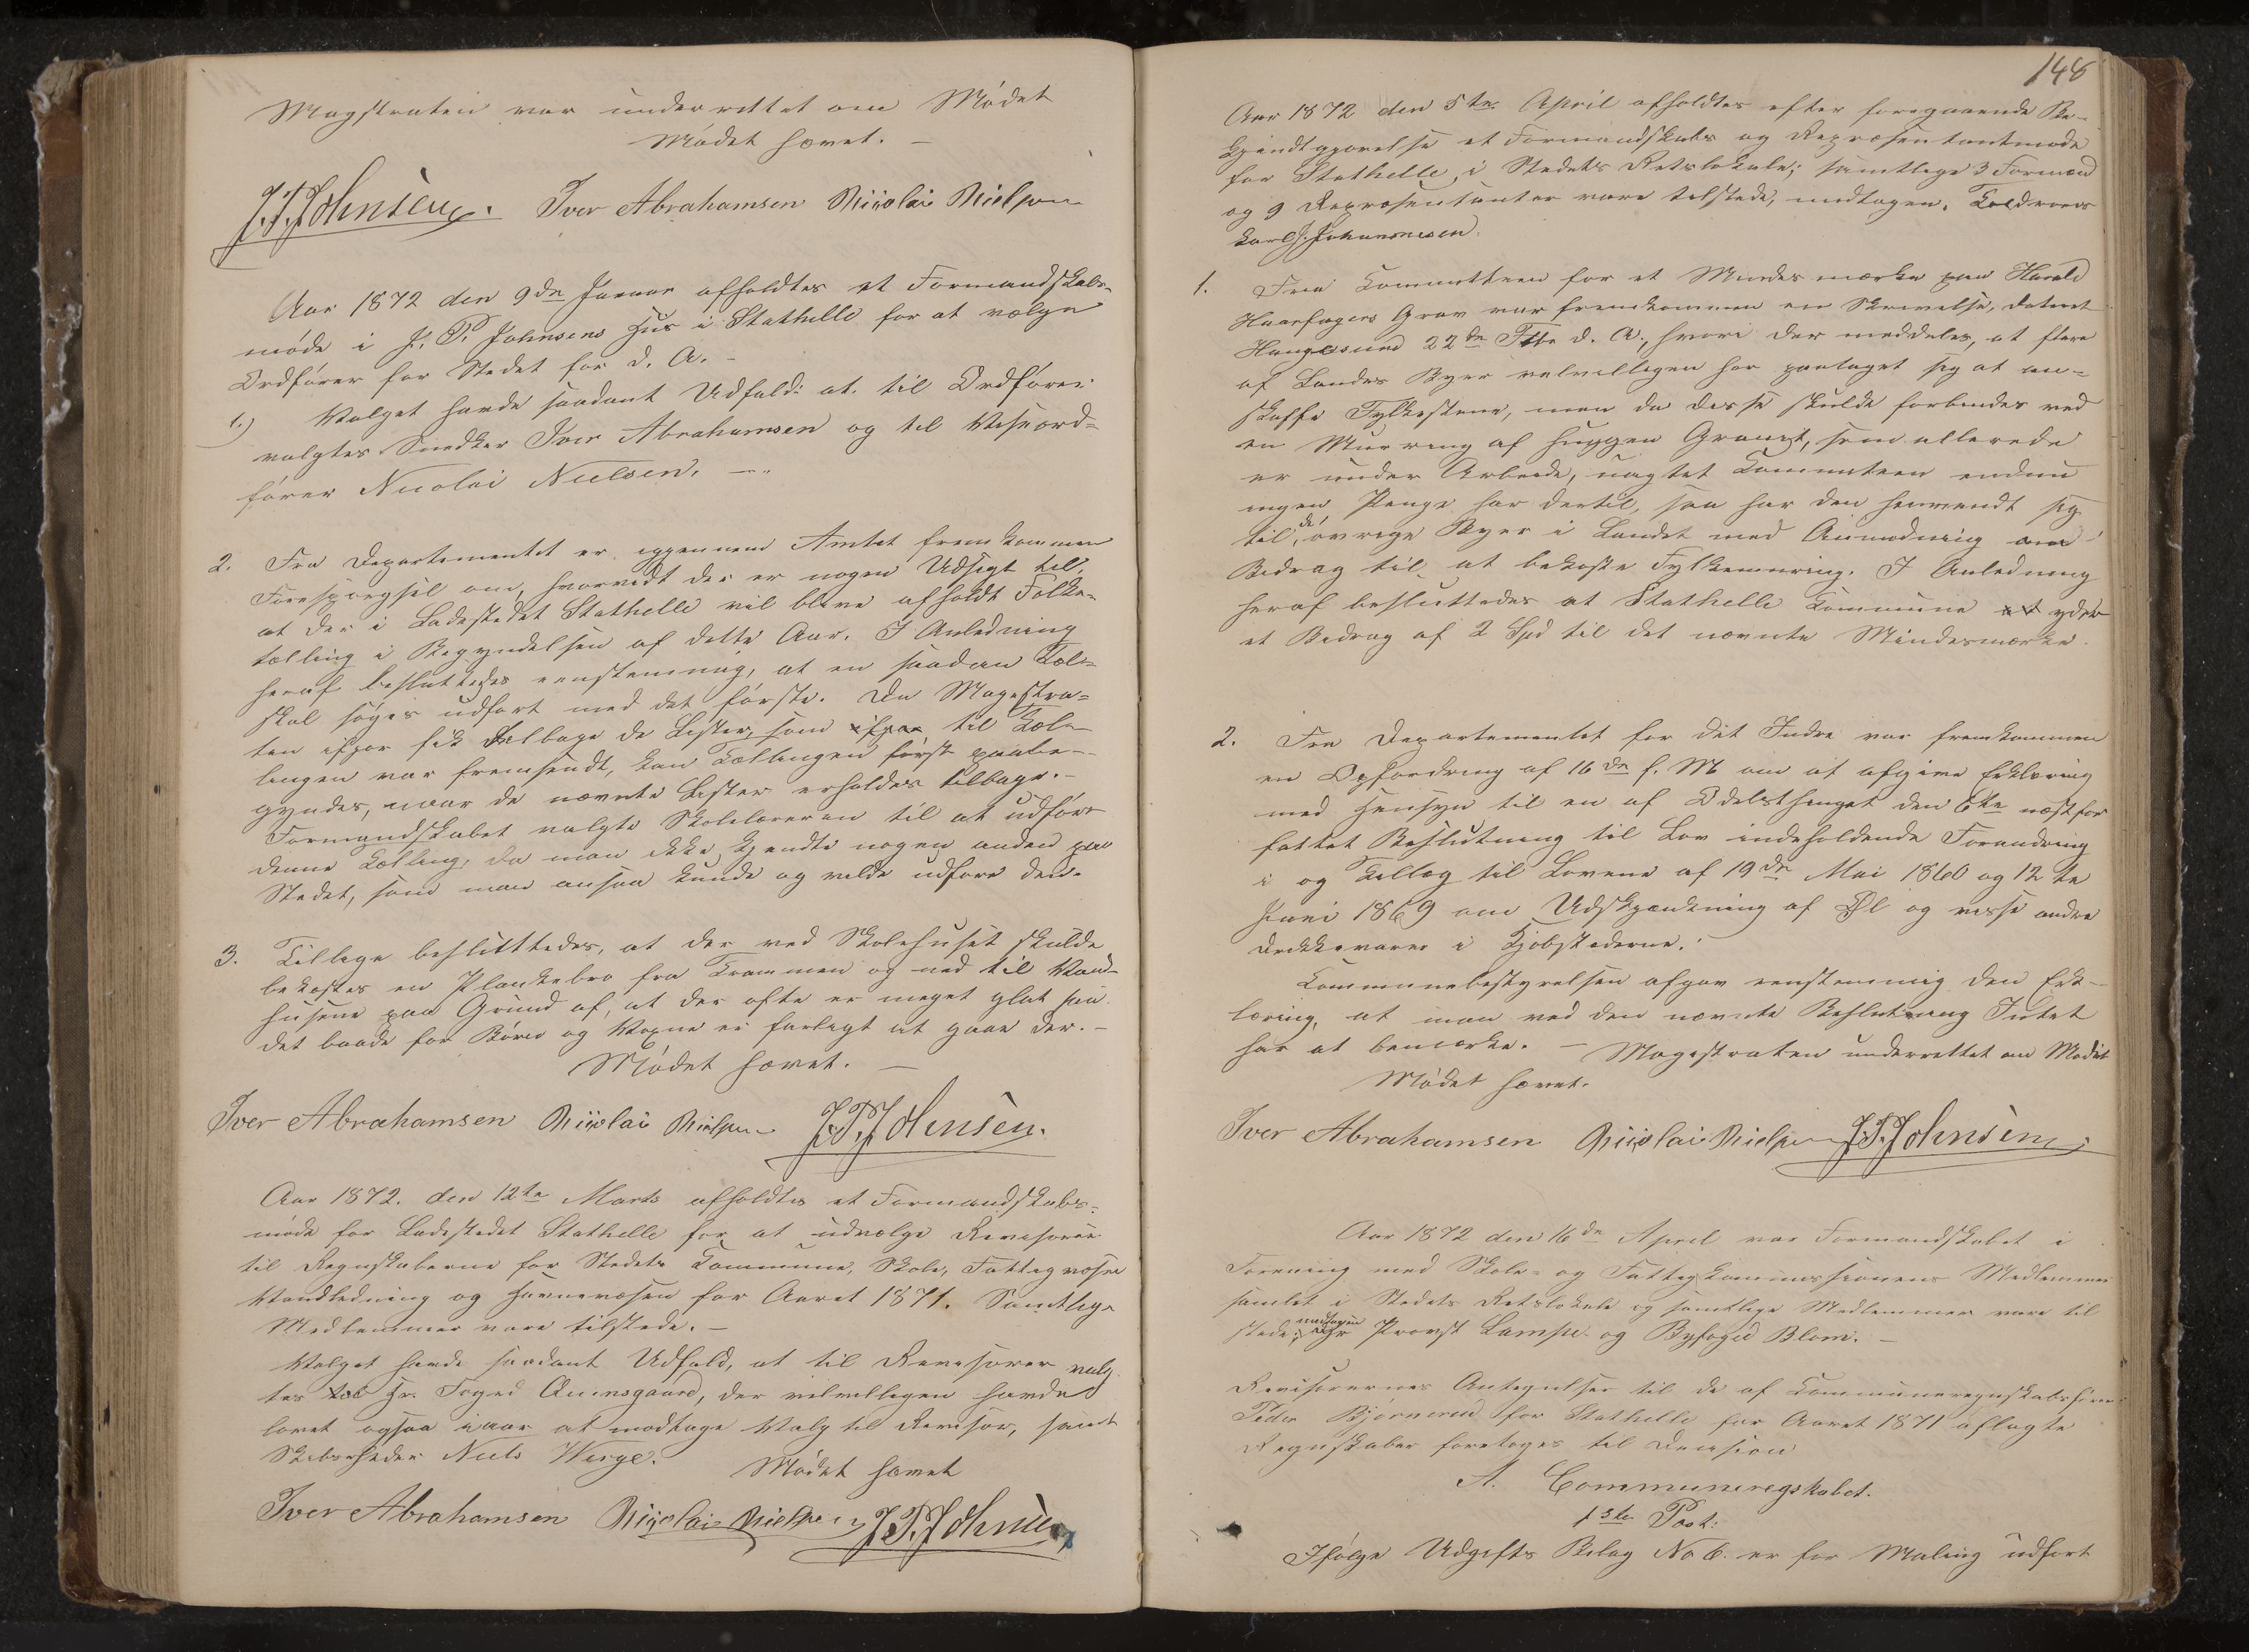 Magistraten var underrettet om Mödet
Mödet hævet. –
J. P. Johnsen. Iver Abrahamsen Nicolai Nielsen
Aar 1872 den 9de Januar afholdtes et Formandskabs-
möde i J. P. Johnsens Hus i Stathelle for at vælge
Ordförer for Stedet for d. A. –
1.) Valget havde saadant Udfald: at til Ordförer
valgtes Snedker Iver Abrahamsen og til Viseord=
förer Nicolai Nielsen. –
2. Fra Departementet er igjennem Amtet fremkommen
Forespörgsel om, hvorvidt der er nogen Udsigt til,
at der i Ladestedet Stathelle vil blive afholdt Folke=
tælling i Begyndelsen af dette Aar. I Anledning
heraf besluttedes eenstemmig, at en saadan Tæl=
skal söges udfört med det förste. Da Magistra=
ten ifjor fik tilbage de Lister, som ifjor til Tæl-
lingen var fremsendt, kan Tællingen först paabe-
gyndes, naar de nævnte Lister erholdes tilbage. –
Formandskabet valgte Skolelæreren til at udföre
denne Tælling, da man ikke kjendte nogen anden paa
Stedet, som man ansaa kunde og vilde udföre den.
3. Tillige besluttedes, at der ved Skolehuset skulde
bekostes en Plankebro fra Trammen og ned til Vand-
husene paa Grund af, at der ofte er meget glat saa
det baade for Börn og Voxne er farligt at gaae der. –
Mödet hævet. –
Iver Abrahamsen Nicolai Nielsen J. P. Johnsen.
Aar 1872. den 12te Marts afholdtes et Formandskabs-
möde for Ladestedet Stathelle for at udvælge Revisorer
til Regnskaberne for Stedets Commune, Skole, Fattigvæsen
Vandledning og Havnevæsen for Aaret 1871. Samtlige
Medlemmer vare tilstede. –
Valget havde saadant Udfald, at til Revisorer valg
tes Hr. Foged Qvensgaard, der velvilligen havde
lovet ogsaa iaar at modtage Valg til Revisor, samt
Skibsrheder Niels Wirge. Mödet hævet
Iver Abrahamsen Nicolai Nielsen J. P. Johnsen
148
Aar 1872 den 5te April afholdtes efter foregaaende Be-
kjendtgjörelse et Formandskabs og Repræsentantmöde
for Stathelle, i Stedets Retslokale; samtlige 3 Formænd
og 9 Repræsentanter vare tilstede, undtagen
Karl J. Johannesen.
1. Fra Committeen for et Mindesmærke paa Harald
Haarfagers Grav var fremkommen en Skrivelse, dateret
Haugesund 22de d. A., hvori der meddeles, at flere
af Landes Byer velvilligen har paataget sig at an=
skaffe Fylkestene, men da disse skulde forbindes ved
en Muurring af huggen Granit, som allerede
er under Arbeide, uagtet Committeen endnu
ingen Penge har dertil, saa har den henvendt sig
til de övrige Byer i Landet med Anmodning om
Bidrag til at bekoste Fylkemuring. I Anledning
heraf besluttedes at Stathelle Commune yder
et Bidrag af 2 Spd til det nævnte Mindesmærke.
2. Fra Departementet for det Indre var fremkommen
en Opfordring af 16de f. M om at afgive Erklæring
med Hensyn til en af Odelsthinget den 6te næstfor
fattet Beslutning til Lov indeholdende Forandring
i og Tillæg til Lovene af 19de Mai 1860 og 12te
Juni 1869 om Udskjænkning af Øl og visse andre
Drikkevarer i Kjöbstæderne.
Communebestyrelsen afgav eenstemmig den Erk-
læring, at man ved den nævnte Beslutning Intet
har at bemærke. – Magistraten underrettet om Mödet
Mödet hævet.
Iver Abrahamsen Nicolai Nielsen J. P. Johnsen
Aar 1872 den 16de April var Formandskabet i
Forening med Skole- og Fattigkommissionens Medlemmer
samlet i Stedets Retslokale og samtlige Medlemmer vare til
stede; undtagen Hr Provst Lampe og Byfoged Blom. –
Revisorernes Antegnelser til de af Communeregnskabsförer
Peder Björnerud for Stathelle for Aaret 1871 aflagte
Regnskaber foretoges til Decision
A. Communeregskabet.
1ste Post:
Ifölge Udgifts Bilag No 6. er for Maling udfört